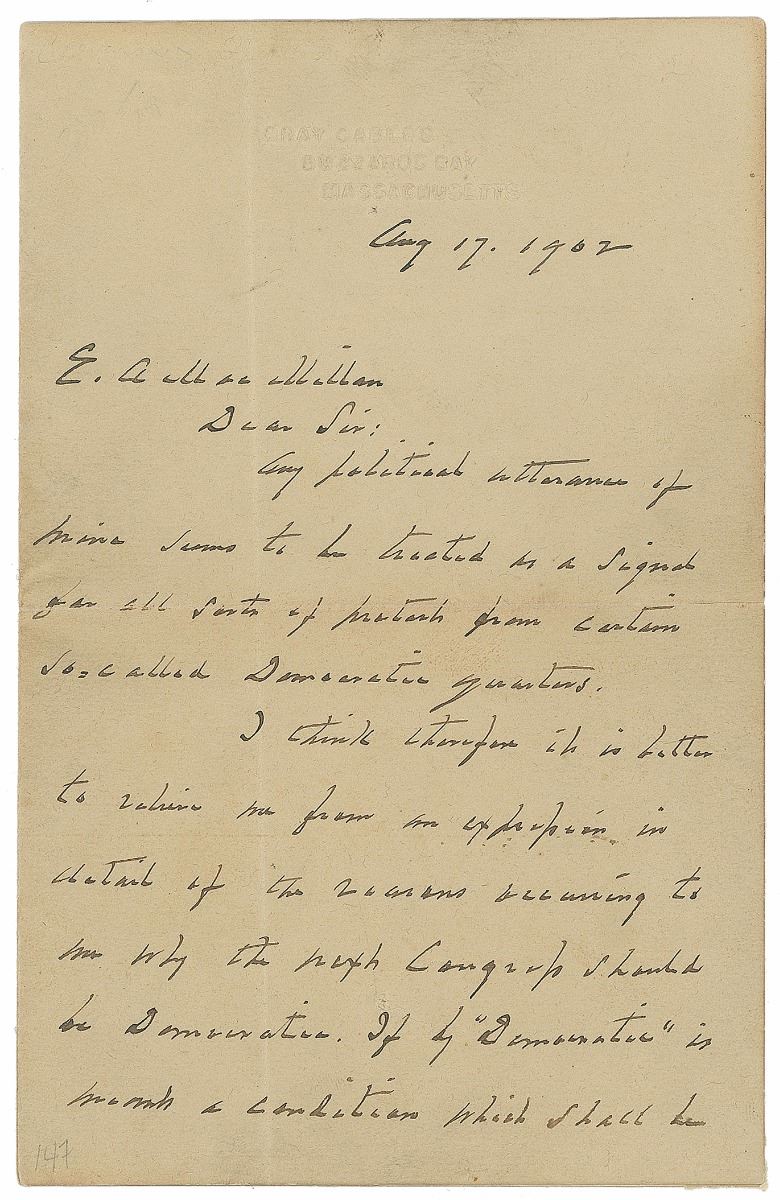 GRAY GABLES
BUZZARDS BAY
MASSACHUSETTS
Aug 17. 1902
E. A MacMillan
Dear Sir:
Any political utterance of
mine seems to be treated as a signal
for all sorts of protest from certain
so=called Democratic quarters.
I think therefore it is better
to relieve me from an expression in
detail of the reasons occurring to
me why the next Congress should
be Democratic. If by "Democratic" is
meant a condition which shall be
147